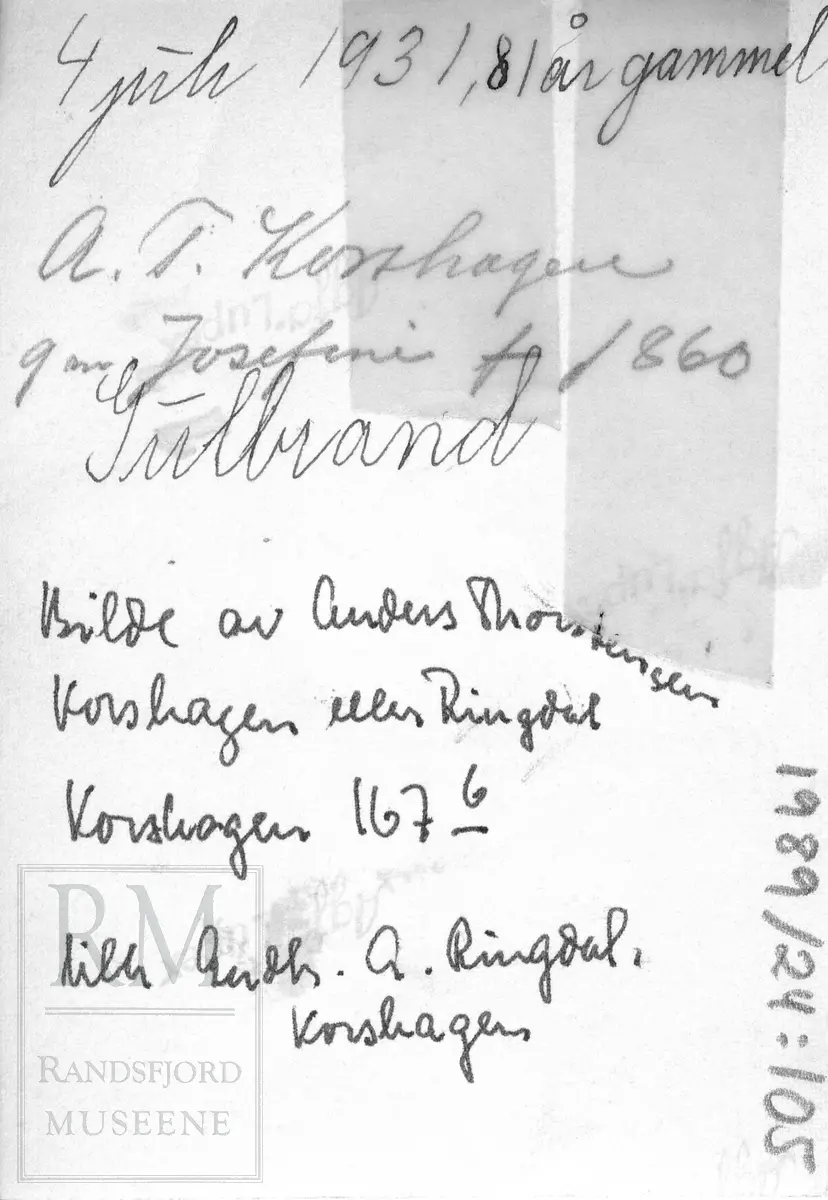 4 juli 1931, 81 år gammel
A. T. Korshagen
gm Josefine f 1860
Gulbrand
Bilde av Anders Thorstensen
Korshagen eller Ringdal
Korshagen 167 6
tilh A. Ringdal.
Korshagen
1989/24:105
RM
RANDSFJORD
MUSEENE